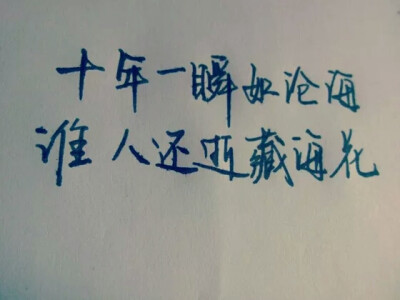 十年一瞬如沧海
谁人还逝藏海花